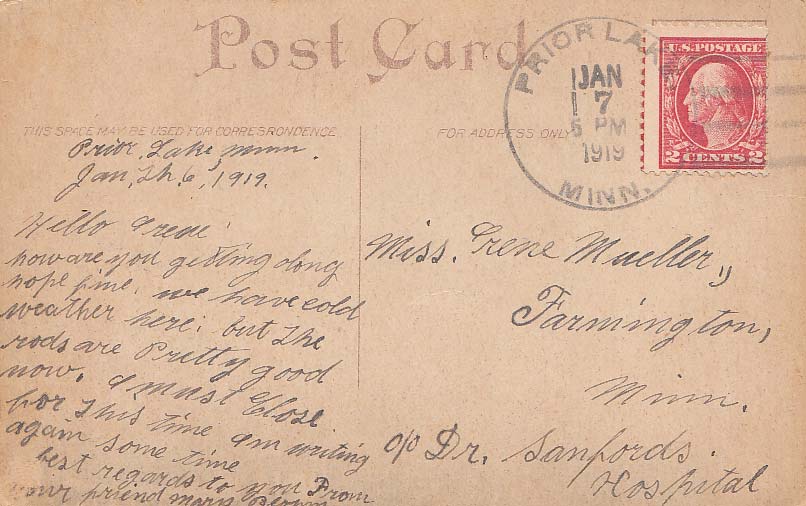 Post Card
PRIOR LAKE
JAN
7
5 PM
1919
MINN.
U.S. POSTAGE
2 CENTS 2
THIS SPACE MAY BE USED FOR CORRESPONDENCE
FOR ADDRESS ONLY
Prior, Lake, Minn.
Jan, Th, 6, 1919.
Hello Irene
how are you getting along
hope fine, we have cold
weather here; but the
rods are Pretty good
now. I must Close
for This time am writing
again some time
best regards to you From
your friend mary
Miss. Irene Mueller,
Farmington,
Minn.
c/o Dr. Sanfords.
Hospital